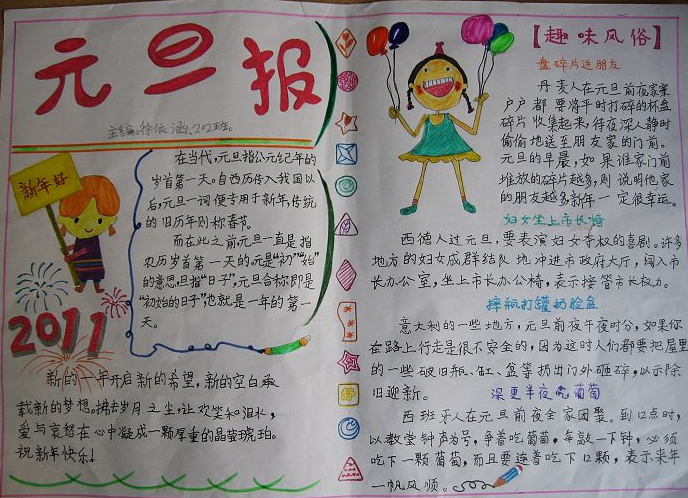 元旦报
主编:徐依涵、202班。
新年好
在当代,元旦指公元纪年的
岁首第一天。自西历传入我国以
后,元旦一词便专用于新年,传统
的旧历年则称春节。
而在此之前元旦一直是指
农历岁首第一天的。元是“初”“始”
的意思,旦指“日子”,元旦合称即是
“初始的日子”,也就是一年的第一
天。
2011
新的一年开启新的希望,新的空白承
载新的梦想。拂去岁月之尘,让欢笑和泪水,
爱与哀愁在心中凝成一颗厚重的晶莹琥珀。
祝新年快乐!
【趣味风俗】
盘碎片送朋友
丹麦人在元旦前夜家家
户户都要将平时打碎的杯盘
碎片收集起来,待夜深人静时
偷偷地送至朋友家的门前。
元旦的早晨,如果谁家门前
堆放的碎片越多,则说明他家
的朋友越多新年一定很幸运。
妇女坐上市长椅
西德人过元旦,要表演妇女夺权的喜剧。许多
地方的妇女成群结队地冲进市政府大厅,闯入市
长办公室,坐上市长办公椅,表示接管市长权力。
摔瓶打罐扔脸盆
意大利的一些地方,元旦前夜午夜时分,如果你
在路上行走是很不安全的,因为这时人们都要把屋里
的一些破旧瓶、缸、盆等扔出门外砸碎,以示除
旧迎新。
深更半夜吃葡萄
西班牙人在元旦前夜全家团聚。到12点时,
以教堂钟声为号,争着吃葡萄,每敲一下钟,必须
吃下一颗葡萄,而且要连着吃下12颗,表示来年
一帆风顺。